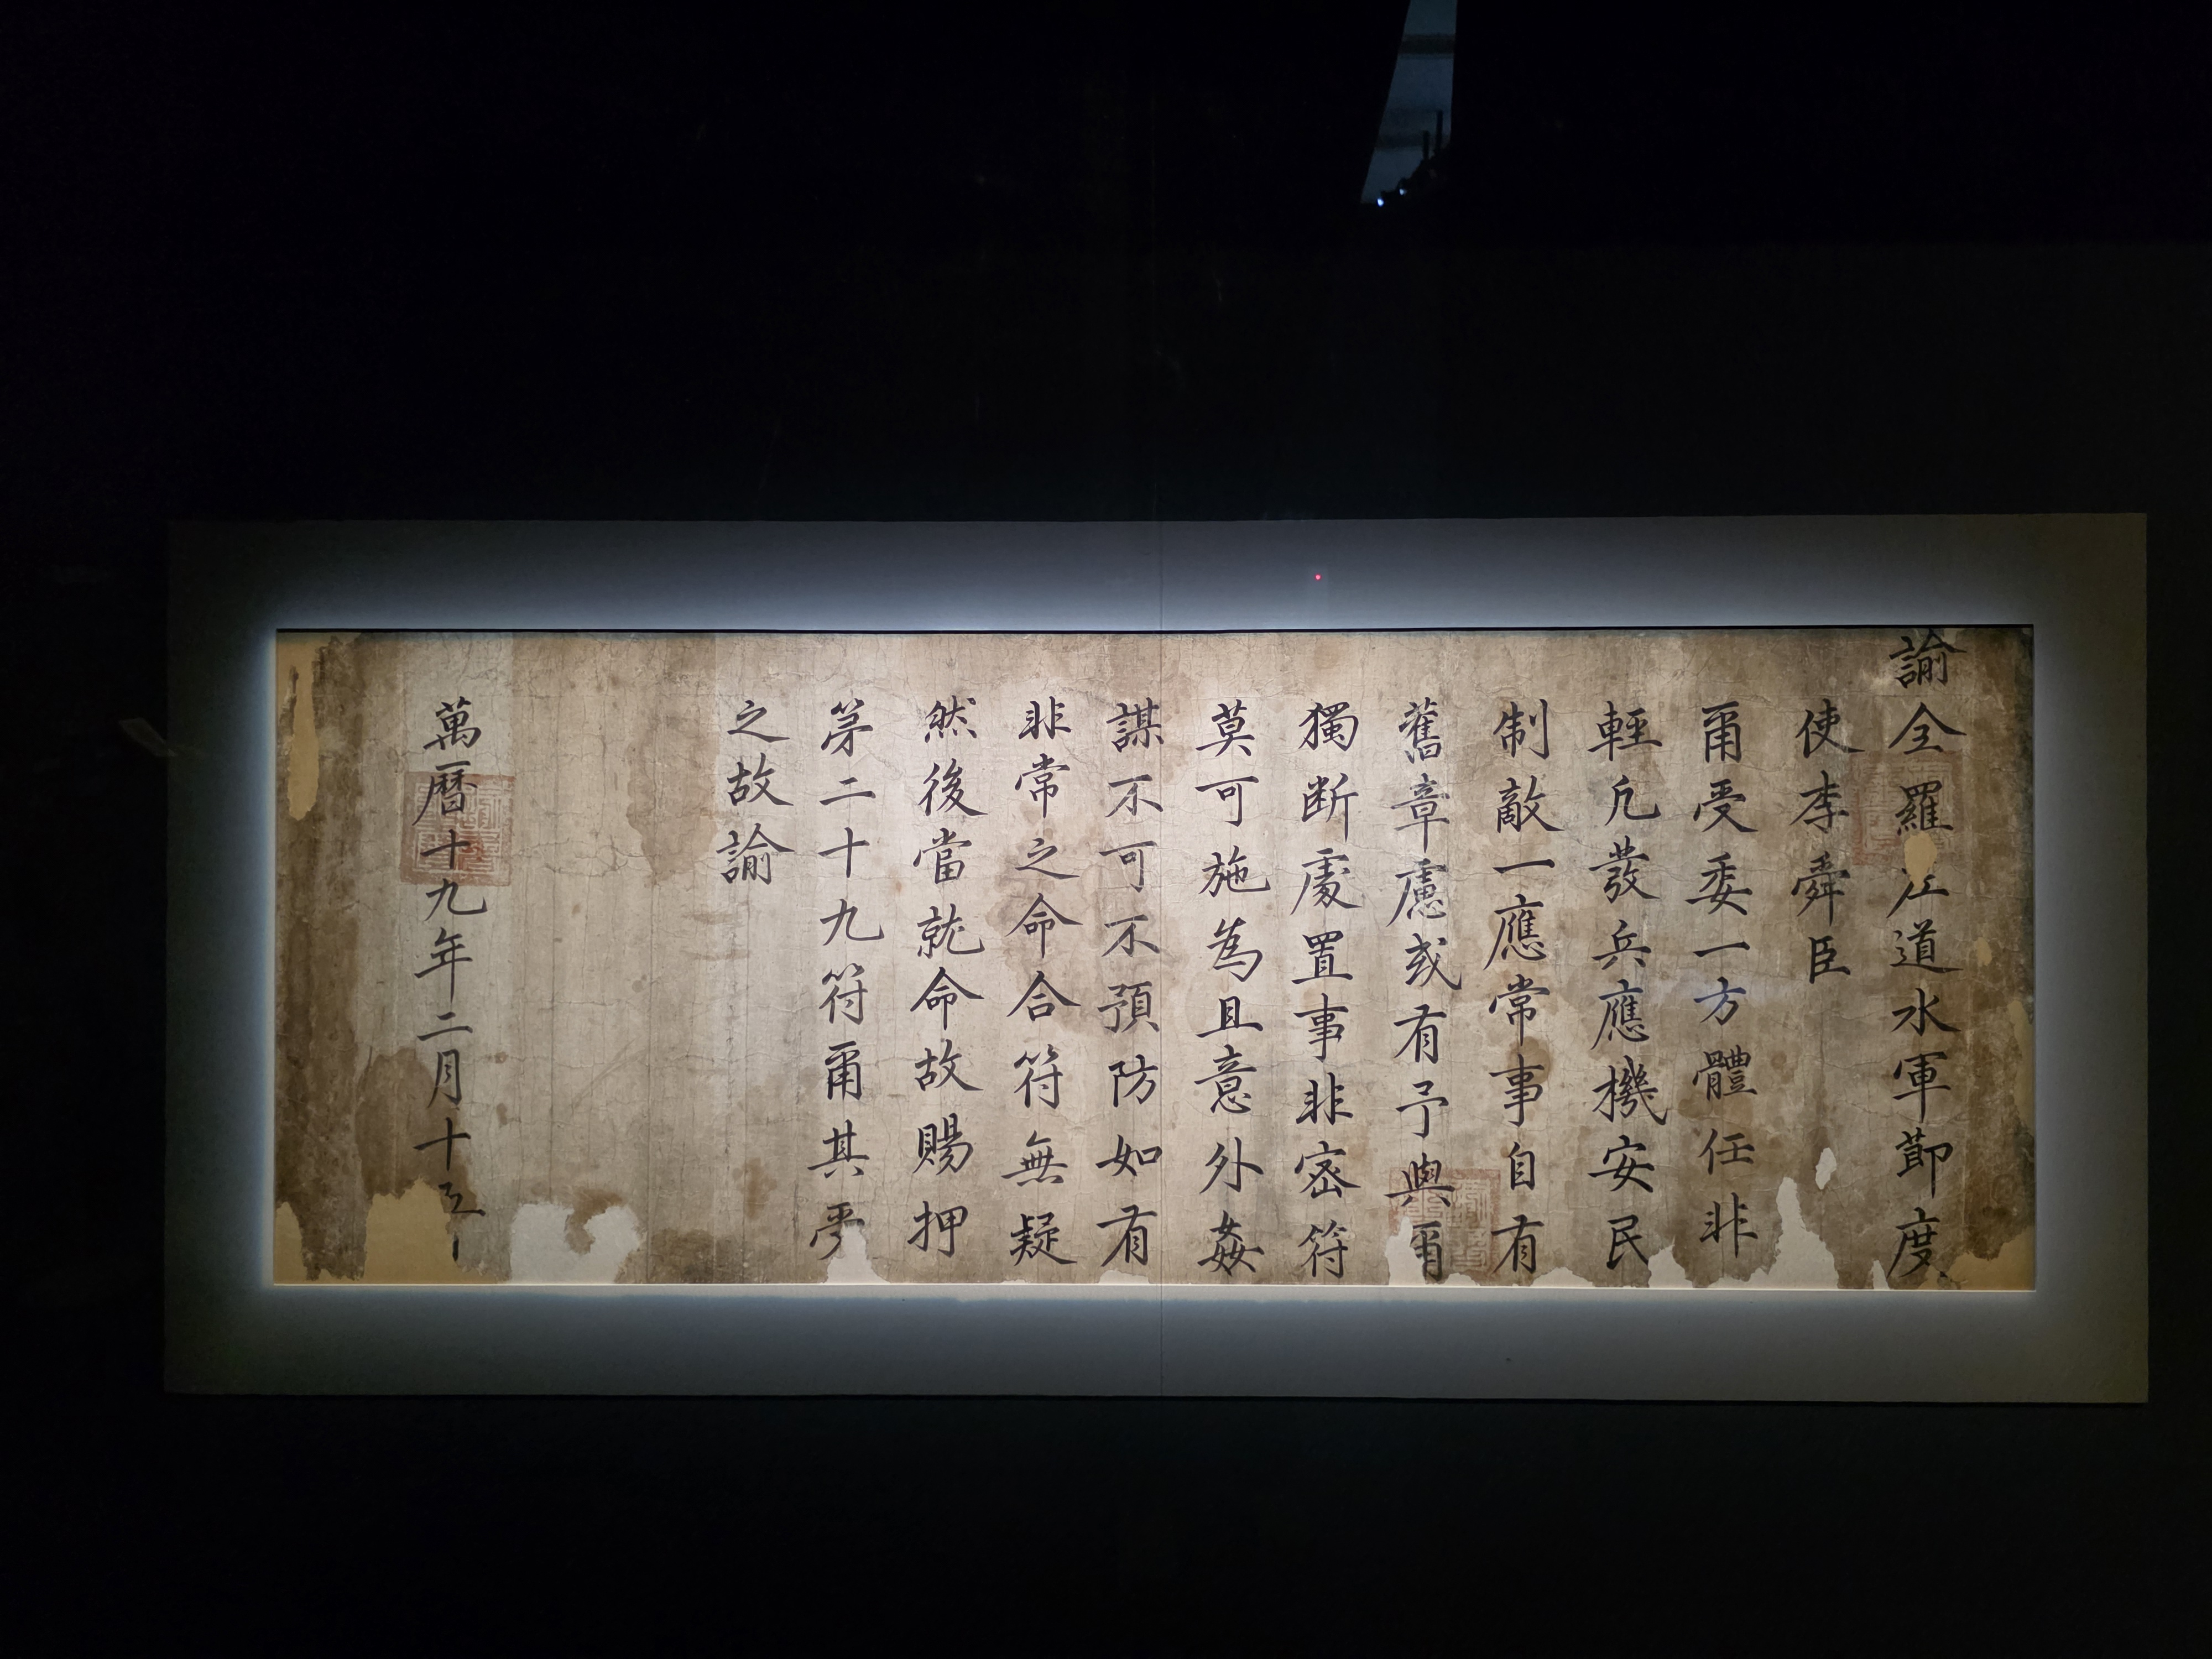 諭全羅左道水軍節度
使李舜臣
爾受委一方體任非
輕凡發兵應機安民
制敵一應常事自有
舊章慮或有予與爾
獨断處置事非密符
莫可施為且意外姦
謀不可不預防如有
非常之命合符無疑
然後當就命故賜押
第二十九符爾其受
之故諭
萬曆十九年二月十五